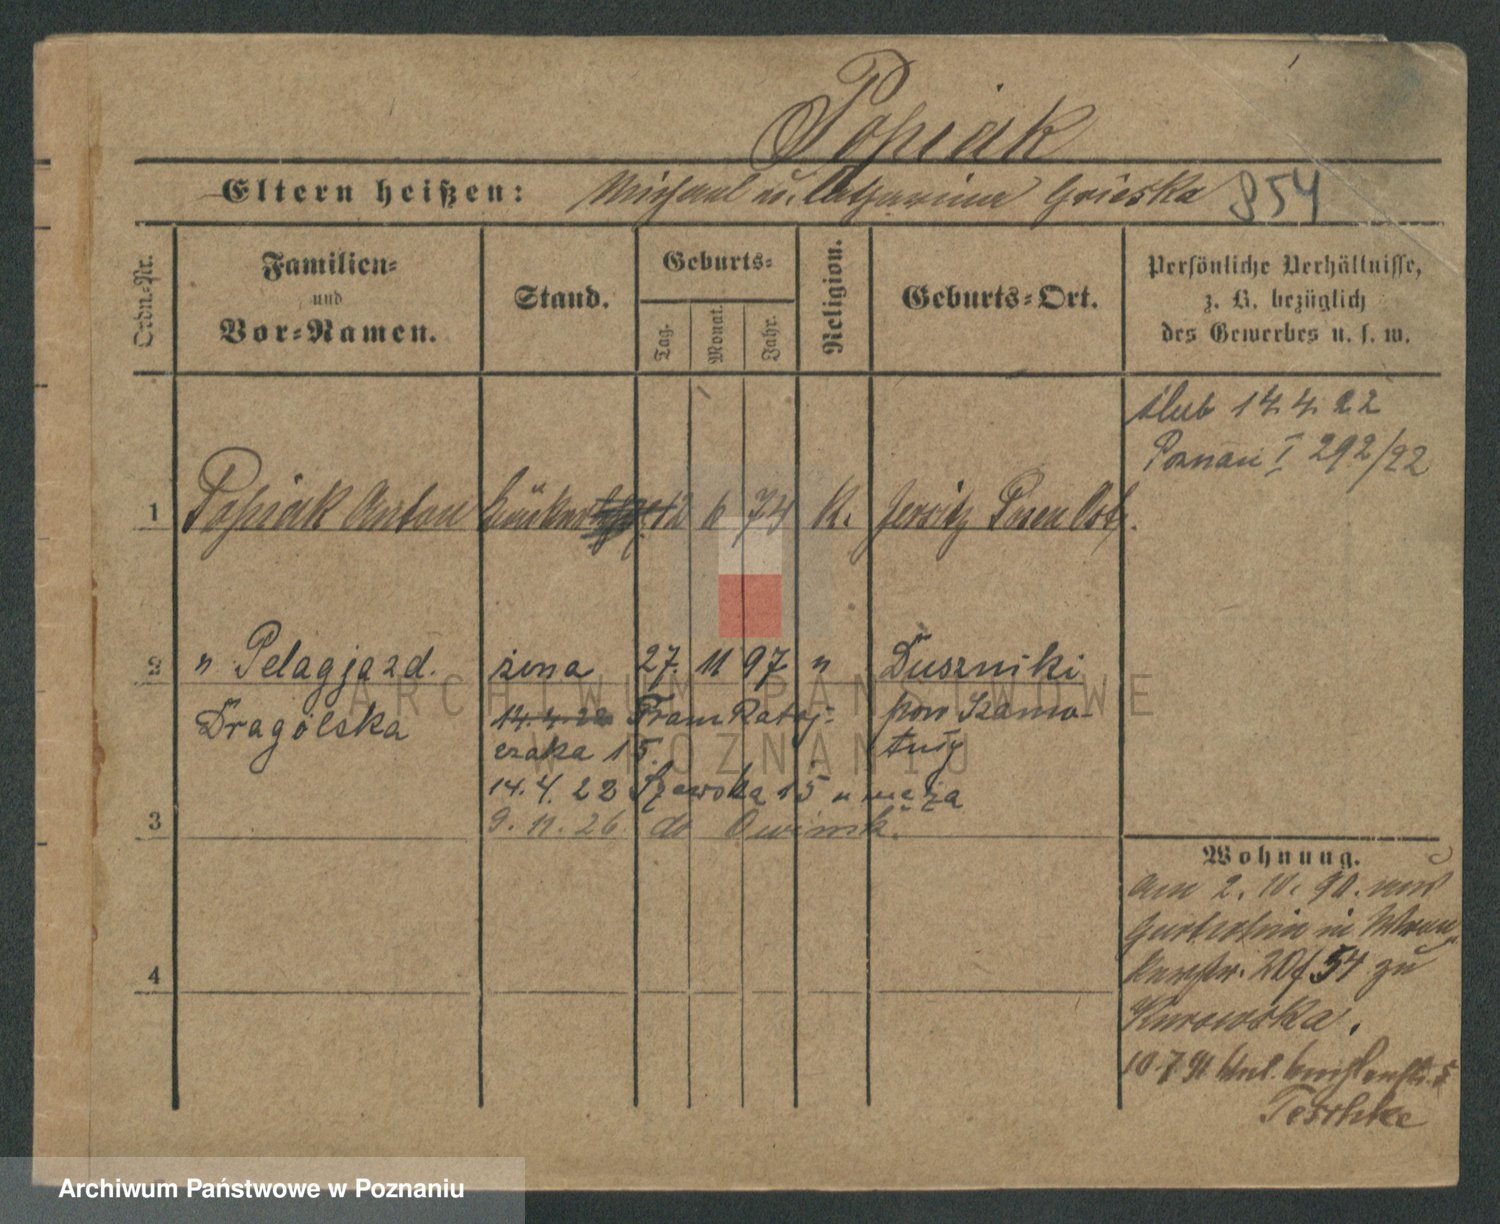 Popiak
Eltern heißen: Michael u. Catharina Grieska 854
Ordn.-Nr.
Familien-
und
Vor-Namen.
Stand.
Geburts-
Tag.
Monat.
Jahr.
Religion.
Geburts-Ort.
Persönliche Verhältnisse,
z. B. bezüglich
des Gewerbes u. s. w.
ślub 14.4.22
Poznań I 292/22
1 Popiak Anton 12 6 74 K. Jersitz Posen Ost.
2 " Pelagja zd. żona 27. 11 97 " Duszniki
Dragolska 14.4.22 Fran Rataj- pow Szamo-
czaka 15. tuły
14.4.22 Szewska 15 u męża
3 9.11.26 do Owińsk.
Wohnung.
am 2.10.90. von
in
20/54 zu
Kurowska.
10.7.91
Teschke
4
ARCHIWUM PAŃSTWOWE
W POZNANIU
Archiwum Państwowe w Poznaniu